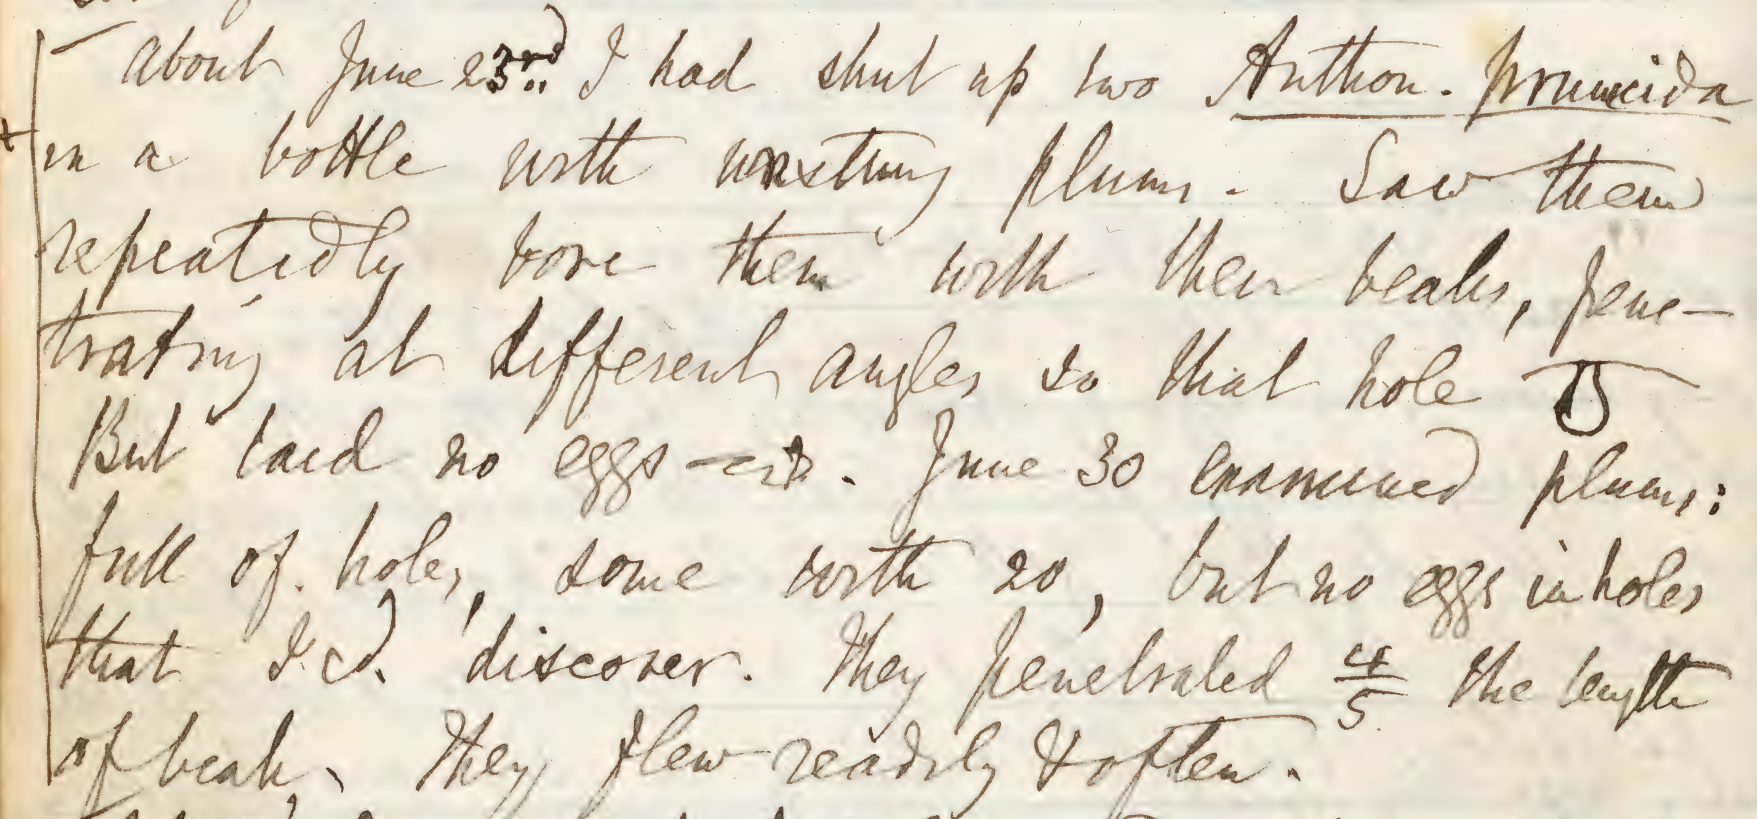 About June 23rd I had shut up two Anthon. prunicida
in a bottle with unstung plums. Saw them
repeatedly bore them with their beaks, pene-
trating at different angles so that hole
But laid no eggs. June 30 examined plums:
full of holes, some with 20, but no eggs in holes
that I cd. discover. They penetrated 4/5 the length
of beak. They flew readily & often.